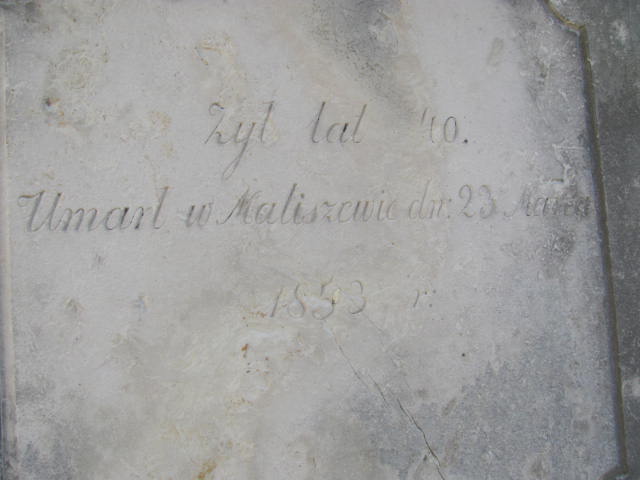 Żył lat 40.
Umarł w Maliszewie dn: 23 Marca
1853 r: